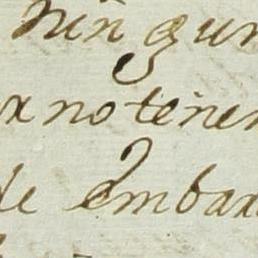 ningun
x no tener
de embar